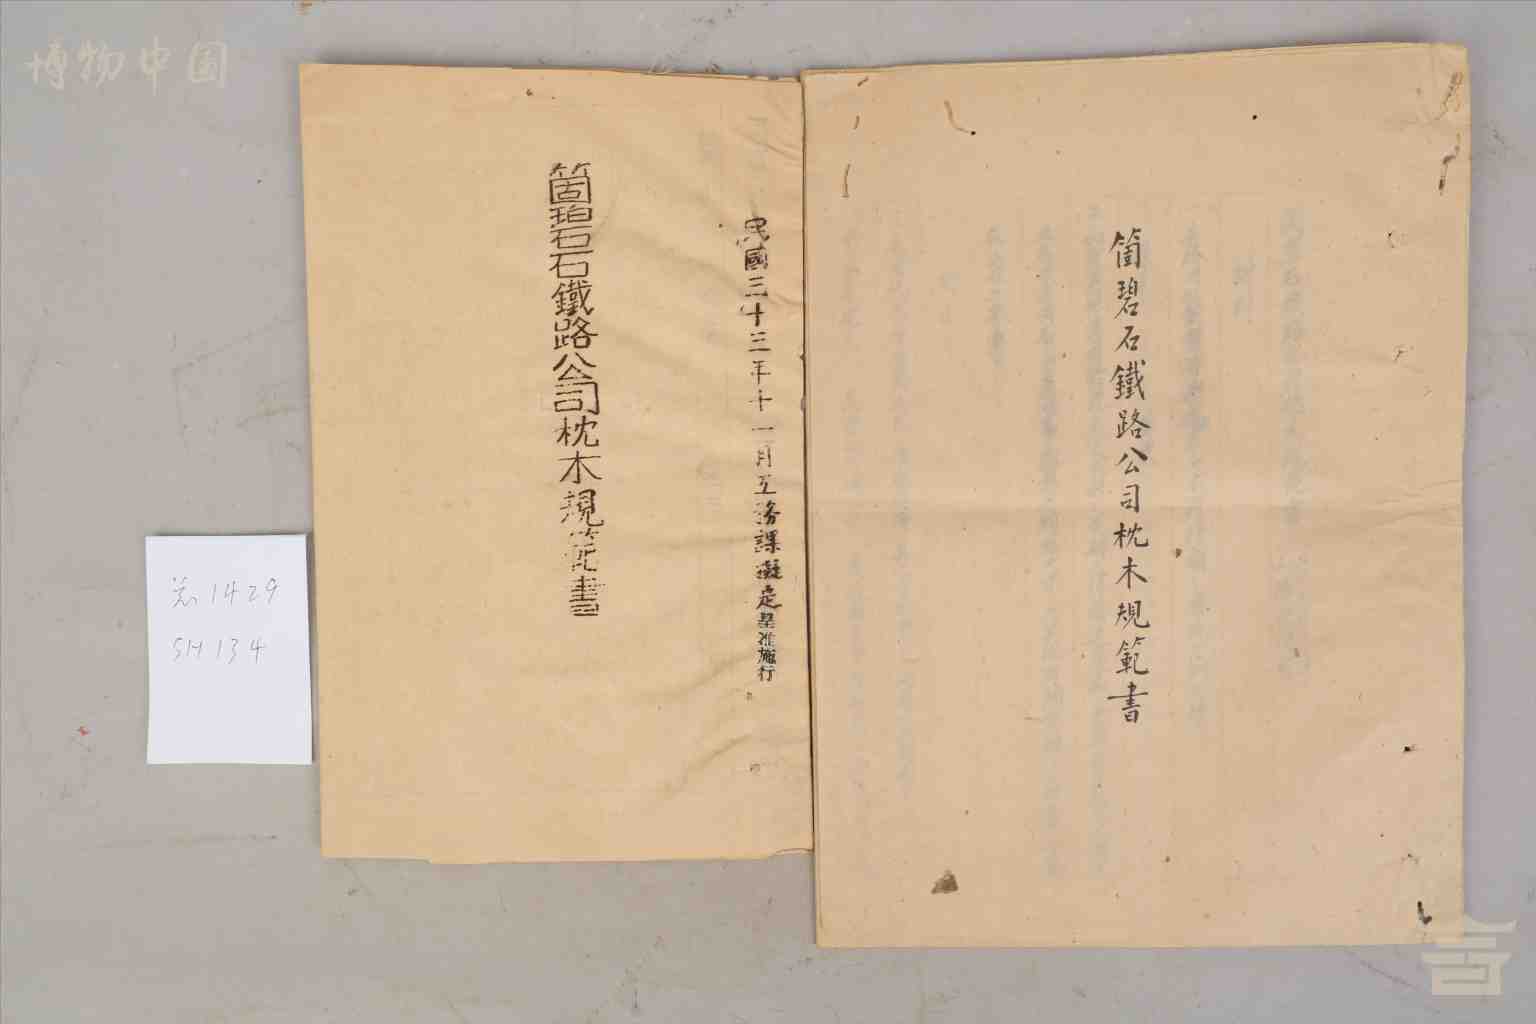 博物中国
箇碧石鐵路公司枕木規範書
民國三十三年十一月工務課擬定呈准施行
箇碧石鐵路公司枕木規範書
总1429
SH134